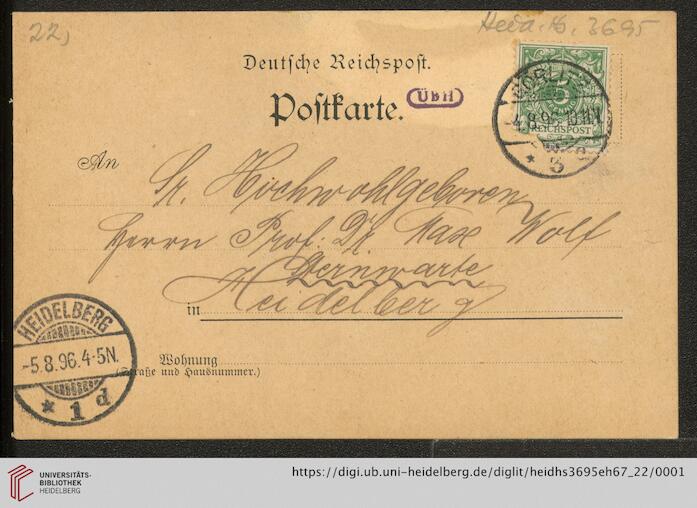 22,
Heid. Hs. 3695
Deutsche Reichspost.
Postkarte.
ÜBH
5
REICHSPOST
GÖRLITZ
4.8.96
3
An
Sr. Hochwohlgeboren
Herrn Prof. Dr. Max Wolf
Sternwarte
in Heidelberg
HEIDELBERG
-5.8.96.4-5N.
* 1 d
Wohnung
(Straße und Hausnummer.)
UNIVERSITÄTS-
BIBLIOTHEK
HEIDELBERG
https://digi.ub.uni-heidelberg.de/diglit/heidhs3695eh67_22/0001